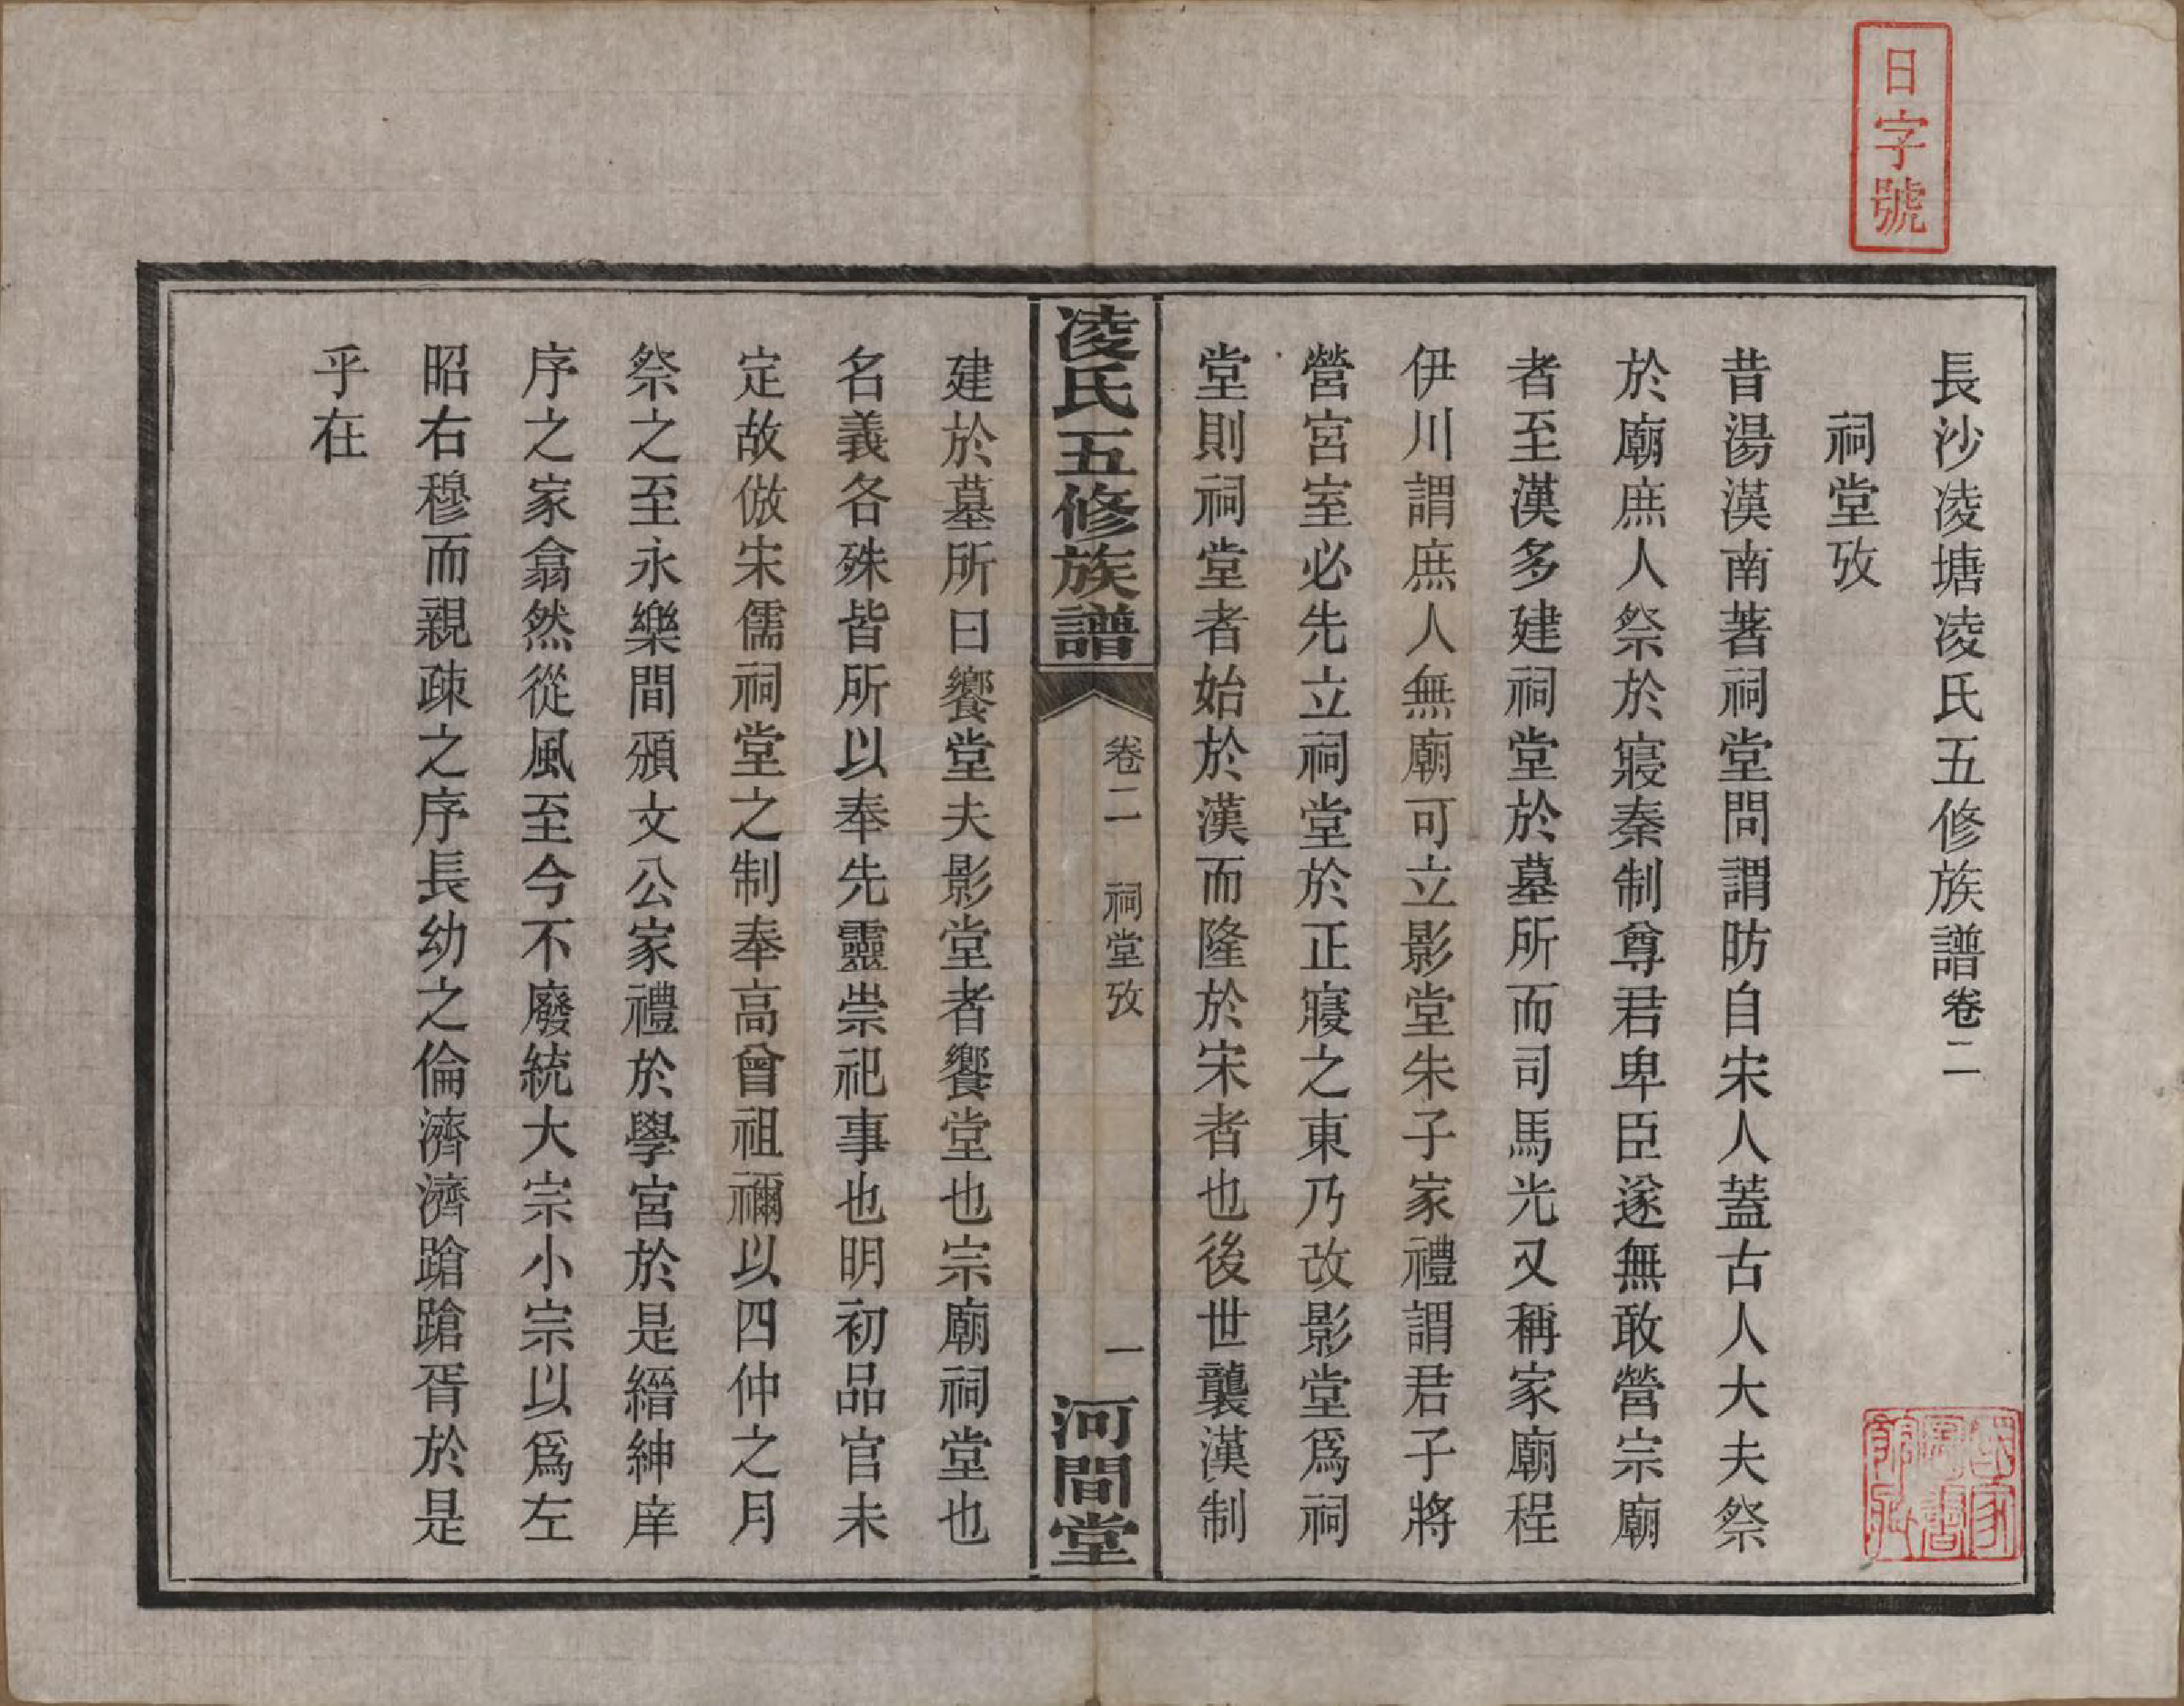 日字號
長沙凌塘凌氏五修族譜卷二
祠堂攷
昔湯漢南著祠堂問謂昉自宋人蓋古人大夫祭
於廟庶人祭於寢秦制尊君卑臣遂無敢營宗廟
者至漢多建祠堂於墓所而司馬光又稱家廟程
伊川謂庶人無廟可立影堂朱子家禮謂君子將
營宮室必先立祠堂於正寢之東乃改影堂爲祠
堂則祠堂者始於漢而隆於宋者也後世襲漢制
凌氏五修族譜
卷二 祠堂攷 一
河間堂
建於墓所曰饗堂夫影堂者饗堂也宗廟祠堂也
名義各殊皆所以奉先靈崇祀事也明初品官未
定故倣宋儒祠堂之制奉高曾祖禰以四仲之月
祭之至永樂間頒文公家禮於學宮於是縉紳庠
序之家翕然從風至今不廢統大宗小宗以爲左
昭右穆而親疎之序長幼之倫濟濟蹌蹌胥於是
乎在